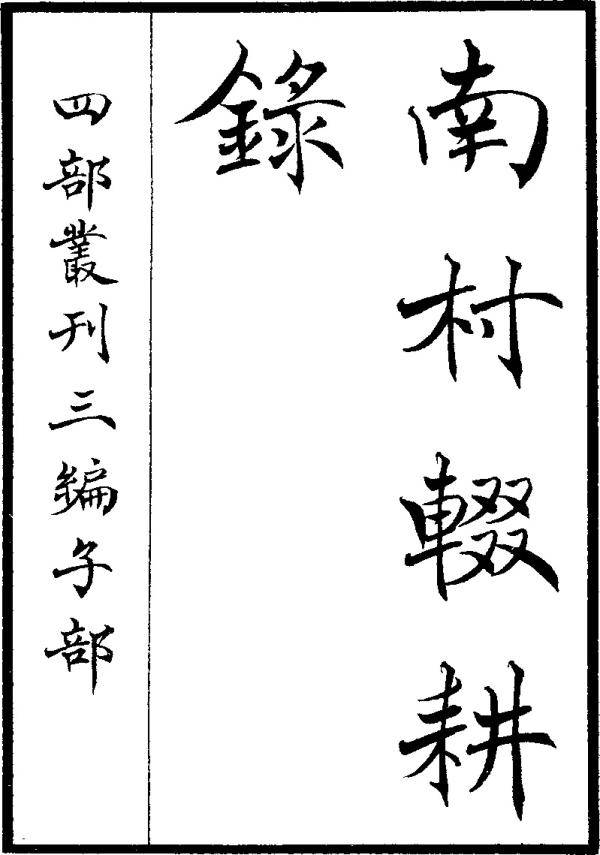 南村輟耕
錄
四部叢刊三編子部